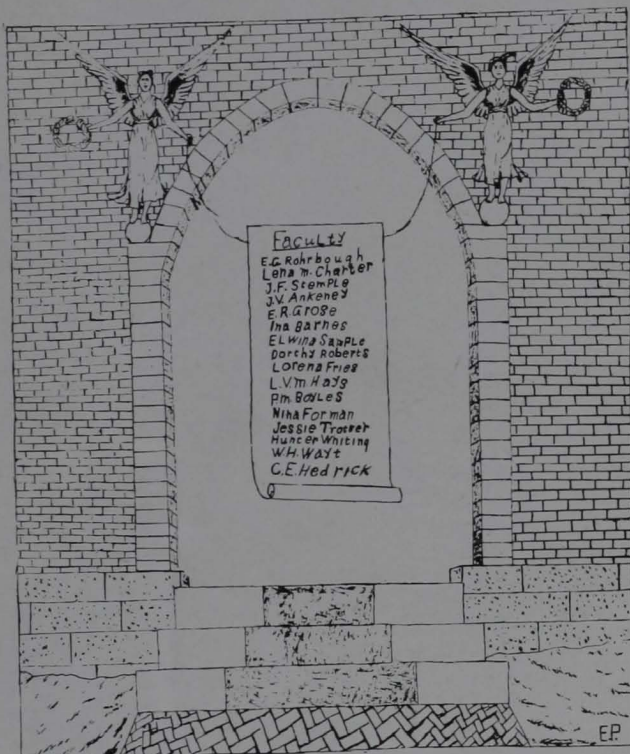 Faculty
E.G. Rohrbough
Lena M. Charter
J.F. Stemple
J.V. Ankeney
E.R. Grose
Ina Barnes
Elwina Sample
Dorthy Roberts
Lorena Fries
L.V.M Hays
P.M. Boyles
Nina Forman
Jessie Trotter
Hunter Whiting
W.H. Wayt
C.E. Hedrick
E.P.